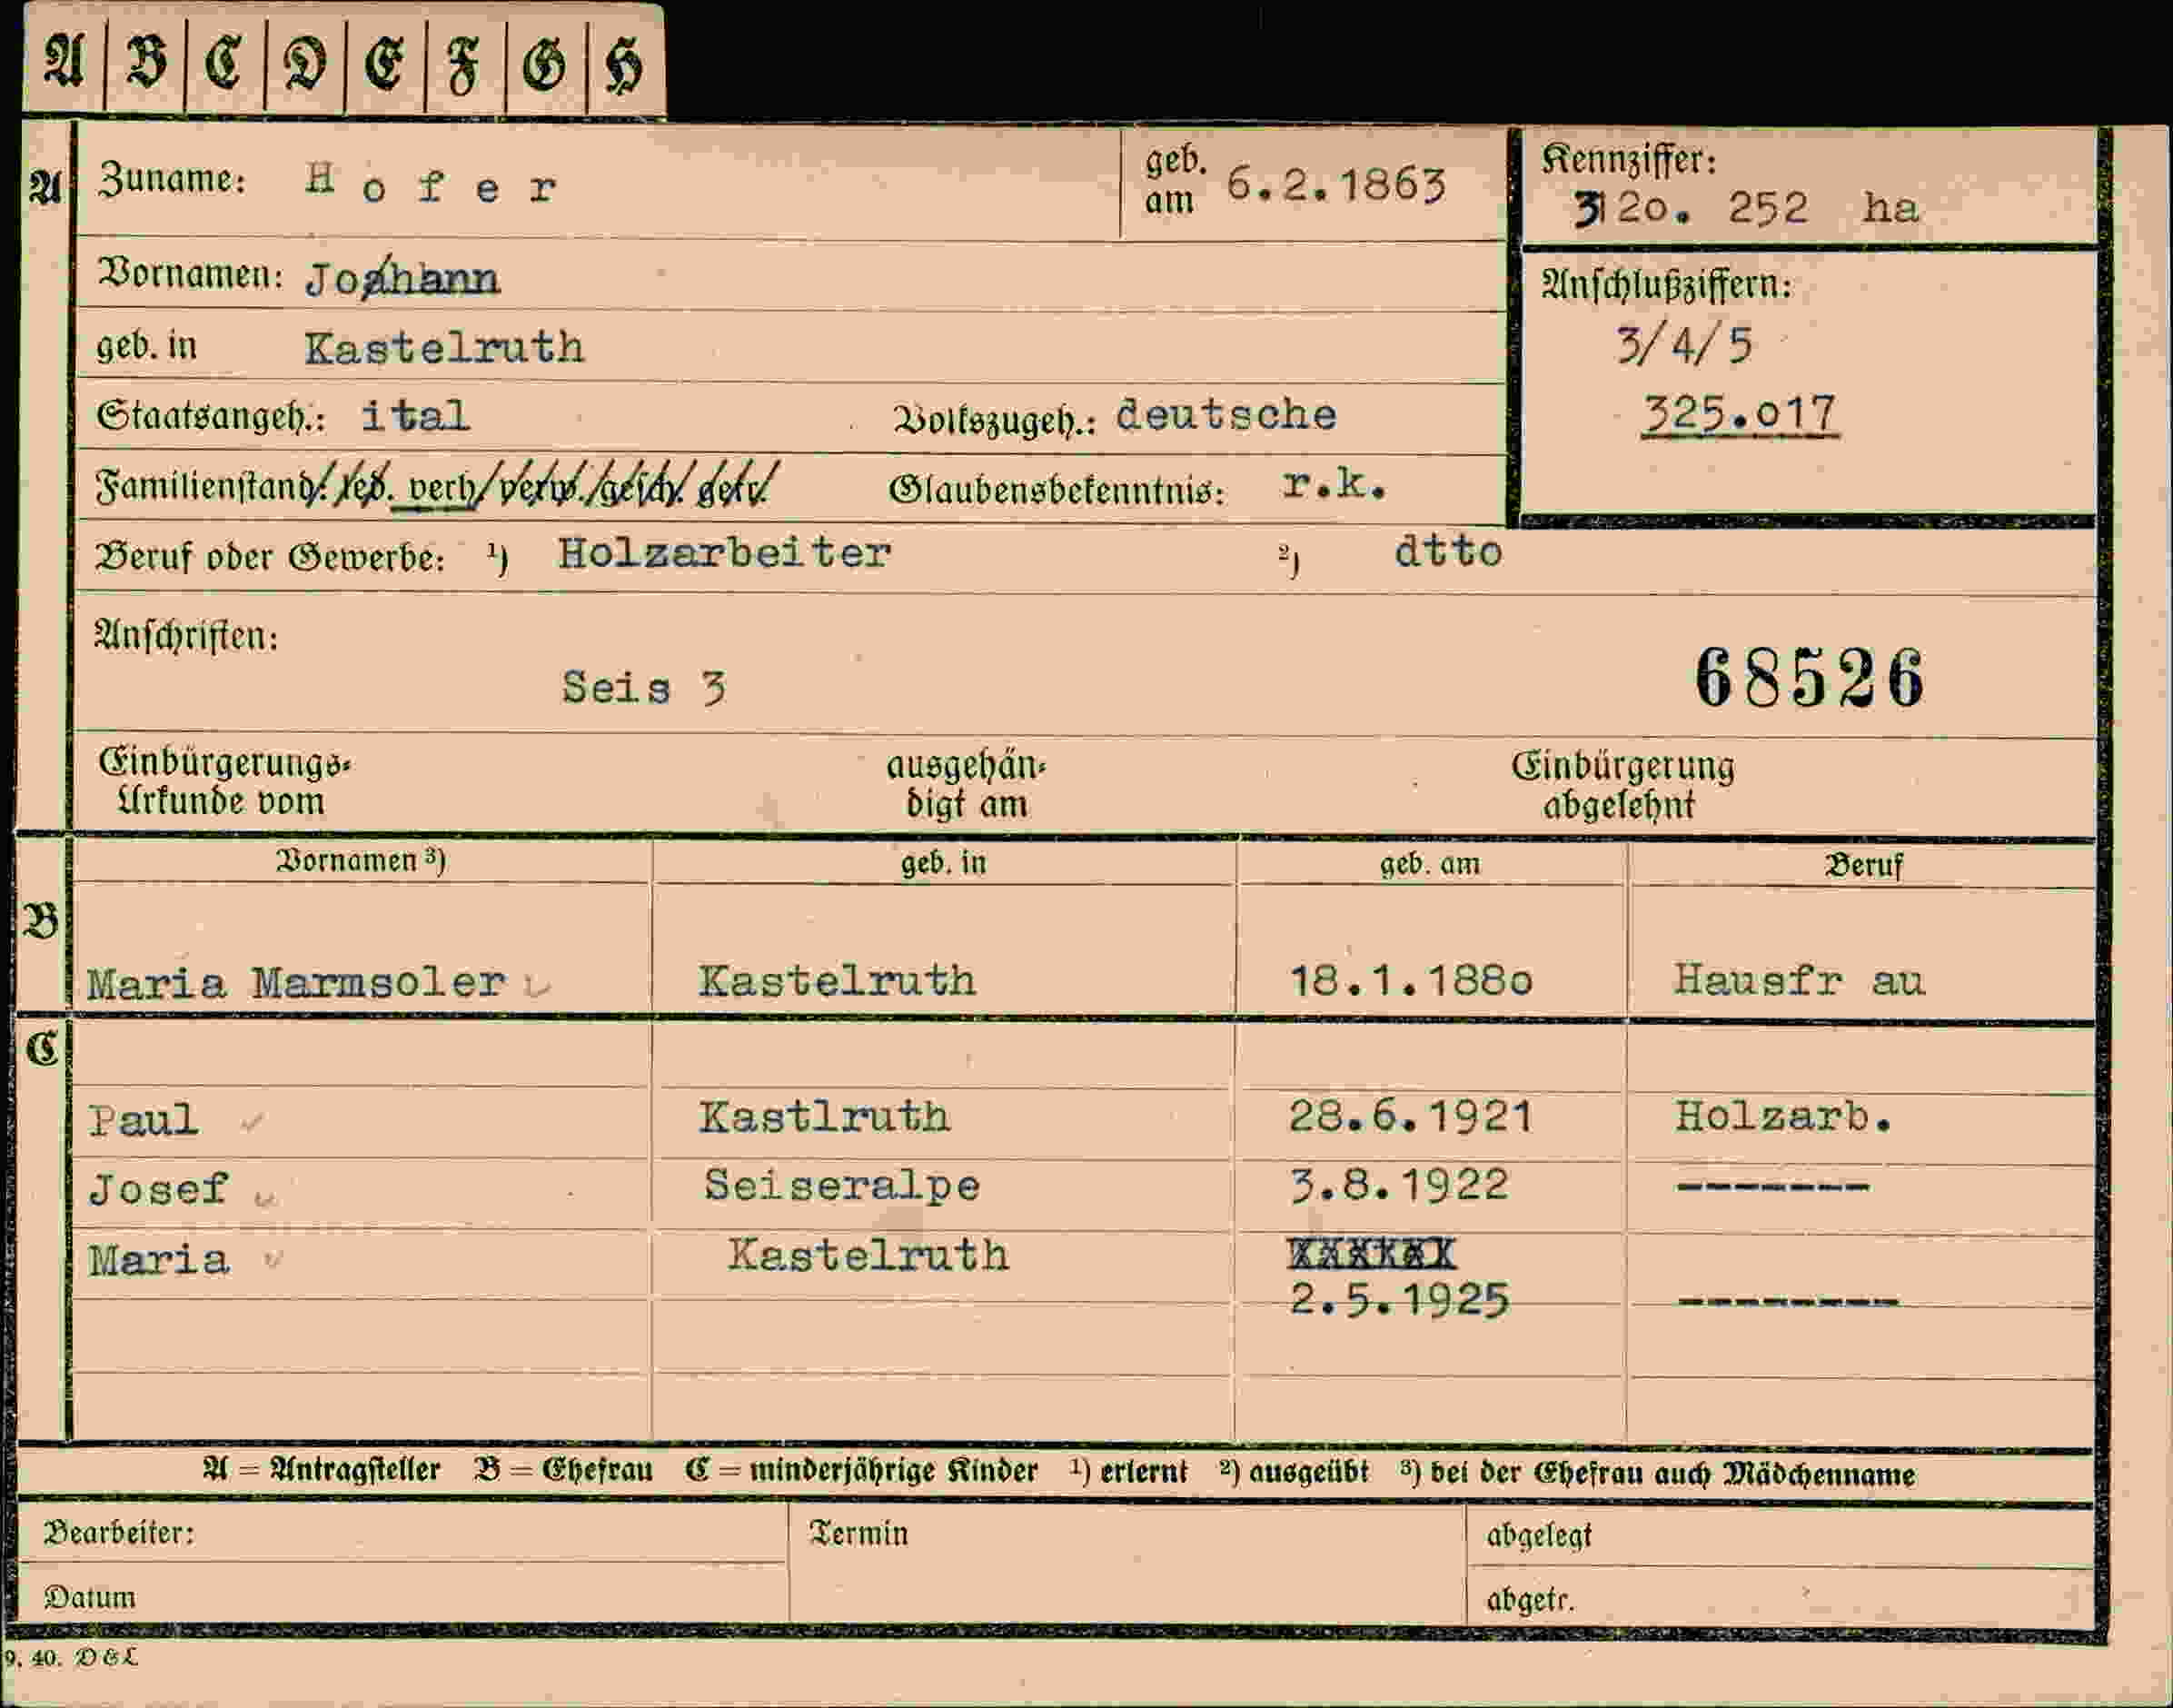 A B C D E F G H
A Zuname: Hofer geb. am 6.2.1863 Kennziffer:
320. 252 ha
Vornamen: Johann Anschlußziffern:
3/4/5
geb. in Kastelruth
325.o17
Staatsangeh.: ital Volkszugeh.: deutsche
Familienstand: led. verh/verw./gesch. getr. Glaubensbekenntnis: r.k.
Beruf oder Gewerbe: ¹) Holzarbeiter ²) dtto
Anschriften:
Seis 3 68526
Einbürgerungs- ausgehän- Einbürgerung
Urkunde vom digt am abgelehnt
Vornamen ³) geb. in geb. am Beruf
B
Maria Marmsoler Kastelruth 18.1.188o Hausfr au
C
Paul Kastlruth 28.6.1921 Holzarb.
Josef Seiseralpe 3.8.1922 -------
Maria Kastelruth
2.5.1925 --------
A = Antragsteller B = Ehefrau C = minderjährige Kinder ¹) erlernt ²) ausgeübt ³) bei der Ehefrau auch Mädchenname
Bearbeiter: Termin abgelegt
Datum abgetr.
9. 40. D&L